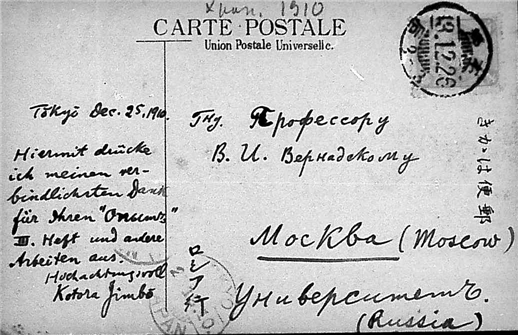 Хран. 1910
CARTE POSTALE
Union Postale Universelle.
Tōkyō Dec. 25, 1910.
Hiermit drücke
ich meinen ver-
bindlichsten Dank
für Ihren "Опытъ"
III. Heft und andere
Arbeiten aus.
Hochachtungsvoll
Kotora Jimbō
Гну. Профессору
В. И. Вернадскому
Москва (Moscow)
Университетъ.
(Russia)
きかは便郵
ロシア行